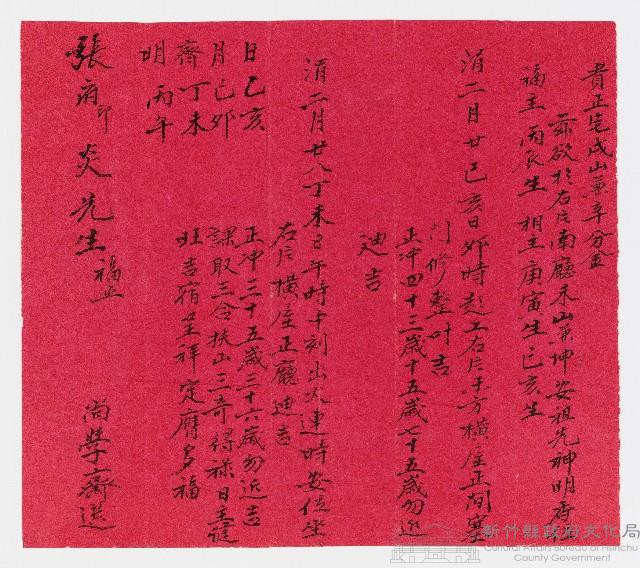 貴正宅戌山兼辛分金
茲欲於右片南廳未山兼坤安祖先神明香
福主丙辰生 相主庚寅生 己亥生
涓二月廿己亥日卯時起工右片未方橫屋正間塞
门修整叶吉
正冲四十三歲十五歲七十五歲勿近
迪吉
涓二月廿八丁未日午時午刻出火連時安位坐
右片橫屋正廳迪吉
正冲三十五歲三十六歲勿近吉
課取三合扶山三奇得祿日主健
旺吉宿呈祥定膺多福
日己亥
月己卯
齋丁未
明丙午
張府印炎先生福照
尚學齋選
新竹縣政府文化局
Cultural Affairs Bureau of Hsinchu
County Government